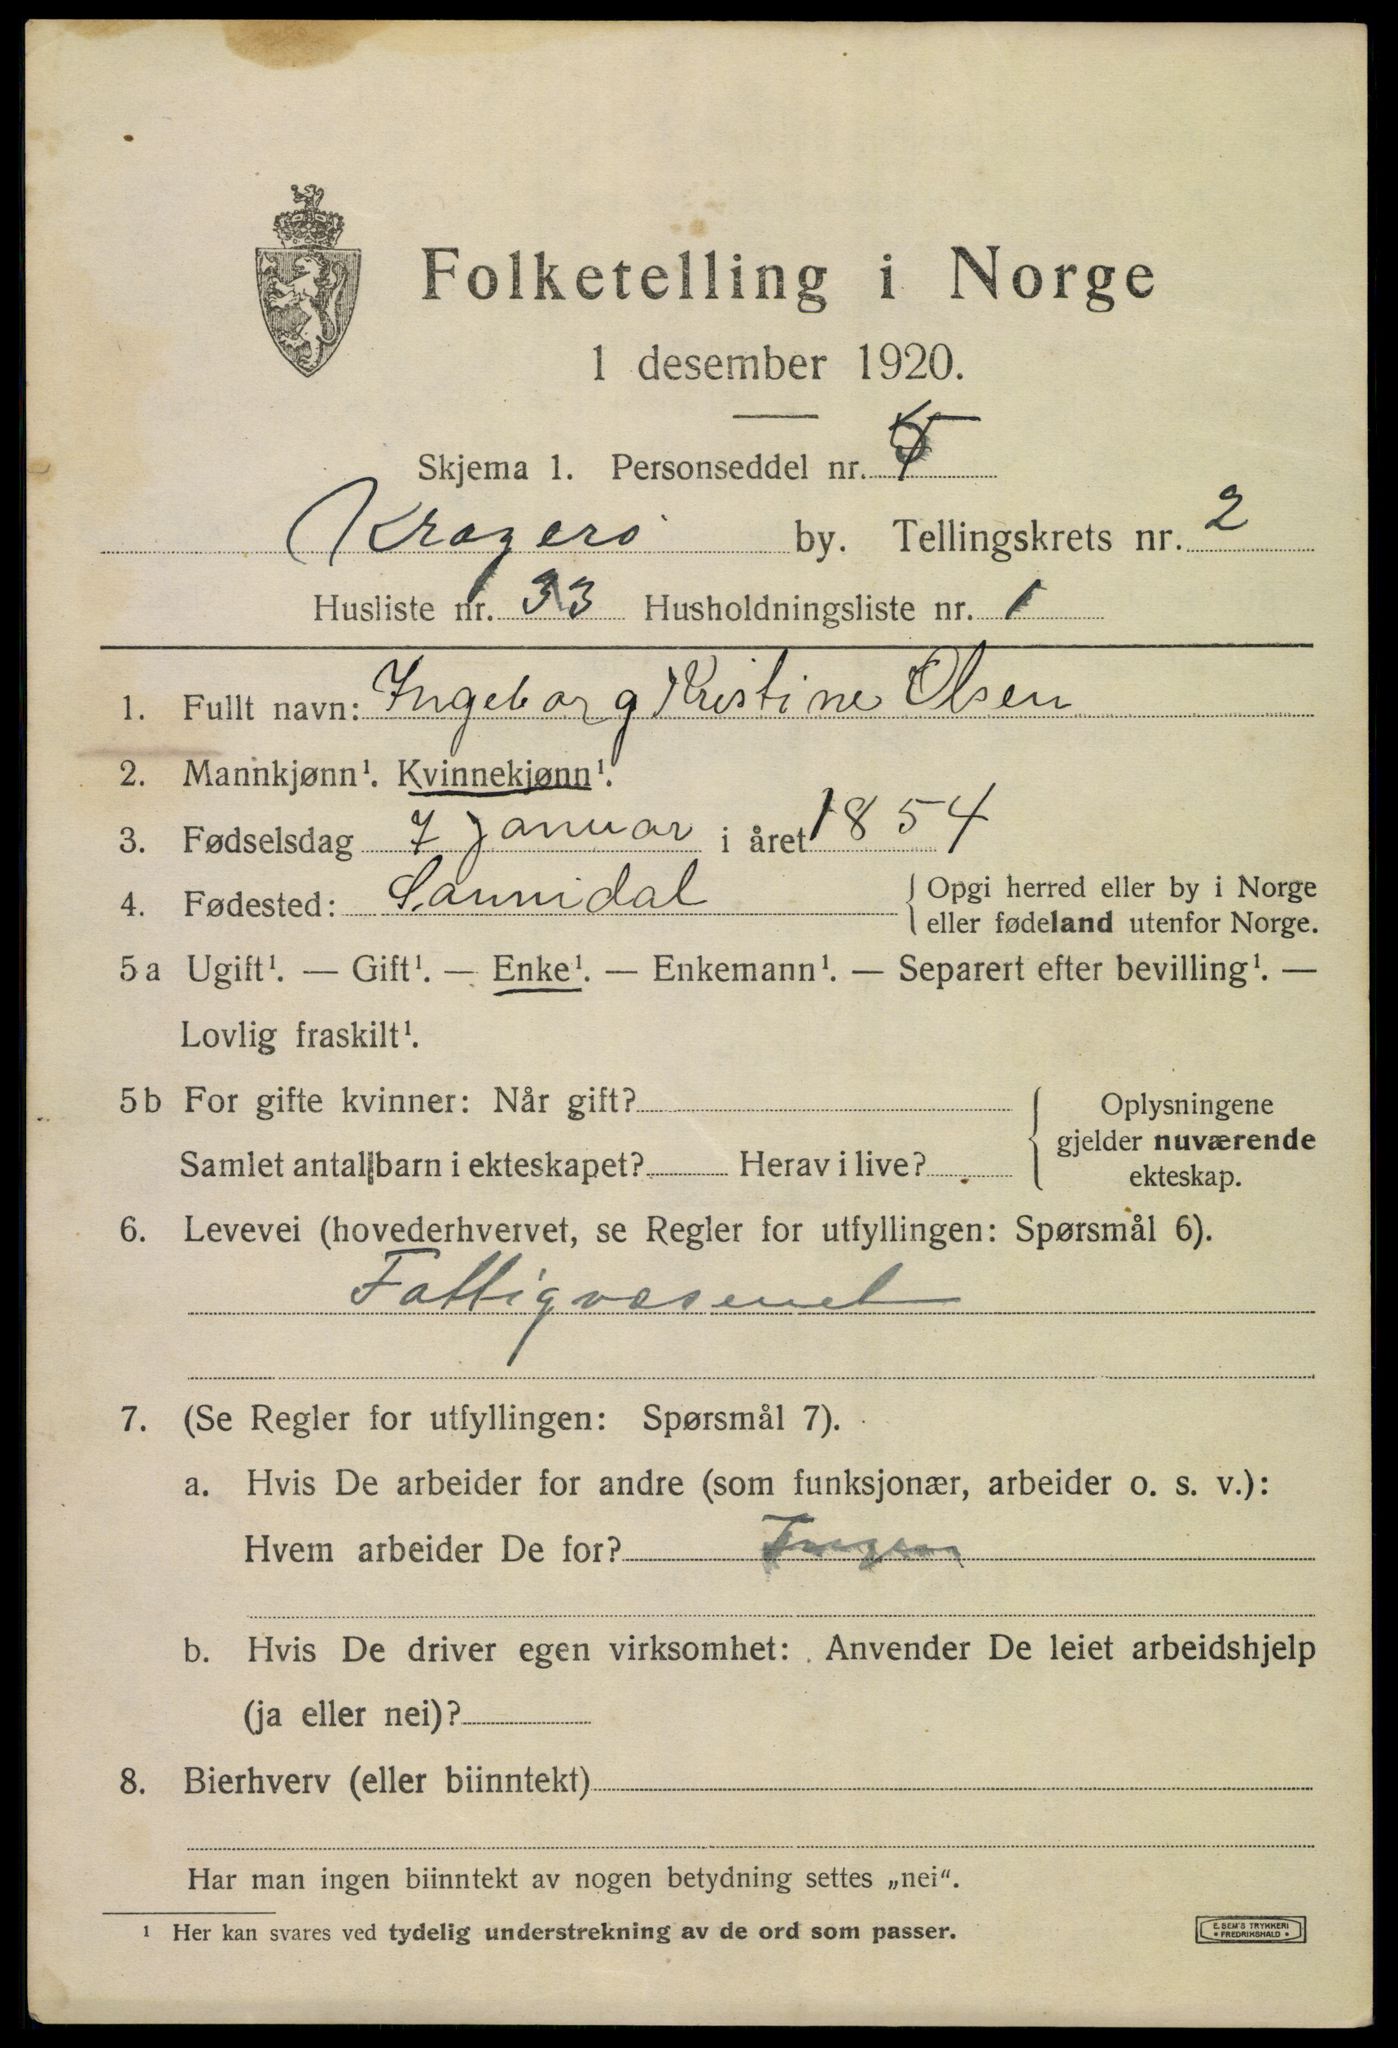 Folketelling i Norge
1 desember 1920.
Skjema 1. Personseddel nr.
Kragerø by. Tellingskrets nr. 2
Husliste nr. 33 Husholdningsliste nr. 1
1. Fullt navn: Ingeborg Kristine Olsen
2. Mannkjønn¹. Kvinnekjønn¹.
3. Fødselsdag 7 januar i året 1854
4. Fødested: Sannidal { Opgi herred eller by i Norge
eller fødeland utenfor Norge.
5a Ugift¹. — Gift¹. — Enke¹. — Enkemann¹. — Separert efter bevilling¹. —
Lovlig fraskilt¹.
5b For gifte kvinner: Når gift?
Samlet antal barn i ekteskapet? Herav i live?
{ Oplysningene
gjelder nuværende
ekteskap.
6. Levevei (hovederhvervet, se Regler for utfyllingen: Spørsmål 6).
Fattigvæsenet
7. (Se Regler for utfyllingen: Spørsmål 7).
a. Hvis De arbeider for andre (som funksjonær, arbeider o. s. v.):
Hvem arbeider De for? Ingen
b. Hvis De driver egen virksomhet: Anvender De leiet arbeidshjelp
(ja eller nei)?
8. Bierhverv (eller biinntekt)
Har man ingen biinntekt av nogen betydning settes „nei“.
¹ Her kan svares ved tydelig understrekning av de ord som passer.
E. SEM'S TRYKKERI
• FREDRIKSHALD •